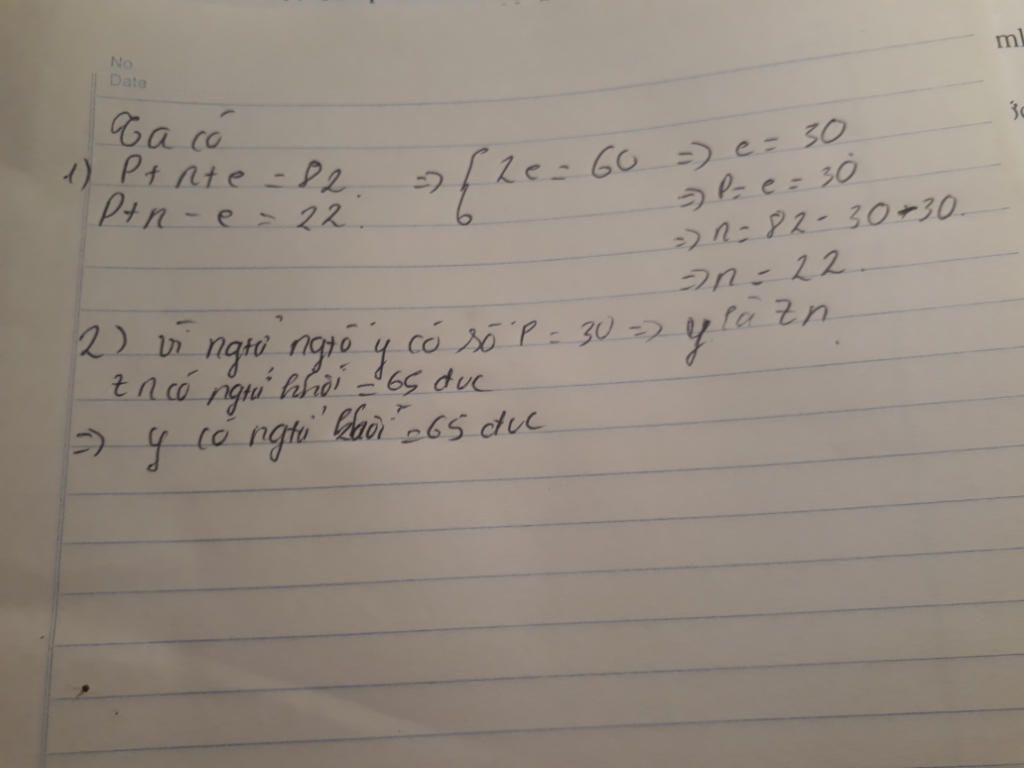 No
Date
Ta có
1) P+n+e = 82. => { 2e = 60 => e = 30
P+n - e = 22. => P= e = 30
=> n= 82 - 30 - 30.
=> n = 22.
2) vì ngtử ngtố y có số P = 30 => y là Zn.
Zn có ngtử khối = 65 đvc
=> y có ngtử khối = 65 đvc
ml